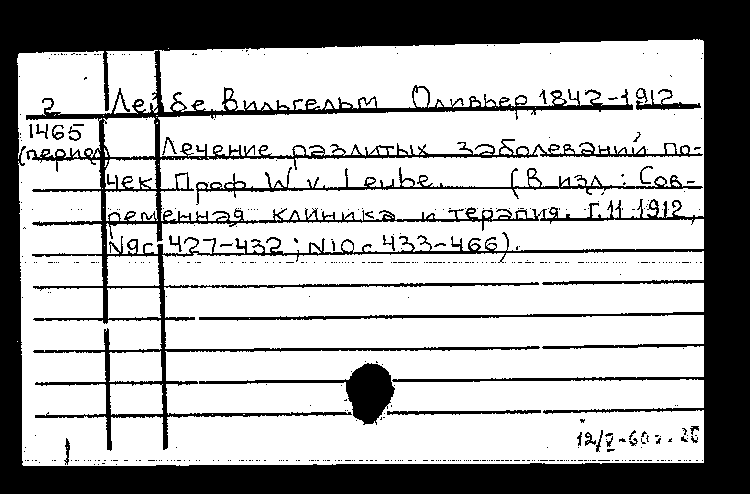 2 Лейбе, Вильгельм Оливьер, 1842-1912.
1465
(период) Лечение разлитых заболеваний по-
чек. Проф. W. v. Leube. (В изд.: Сов-
ременная клиника и терапия. Г. 11. 1912,
N9 с. 427-432; N10 с. 433-466).
12/V-60г.